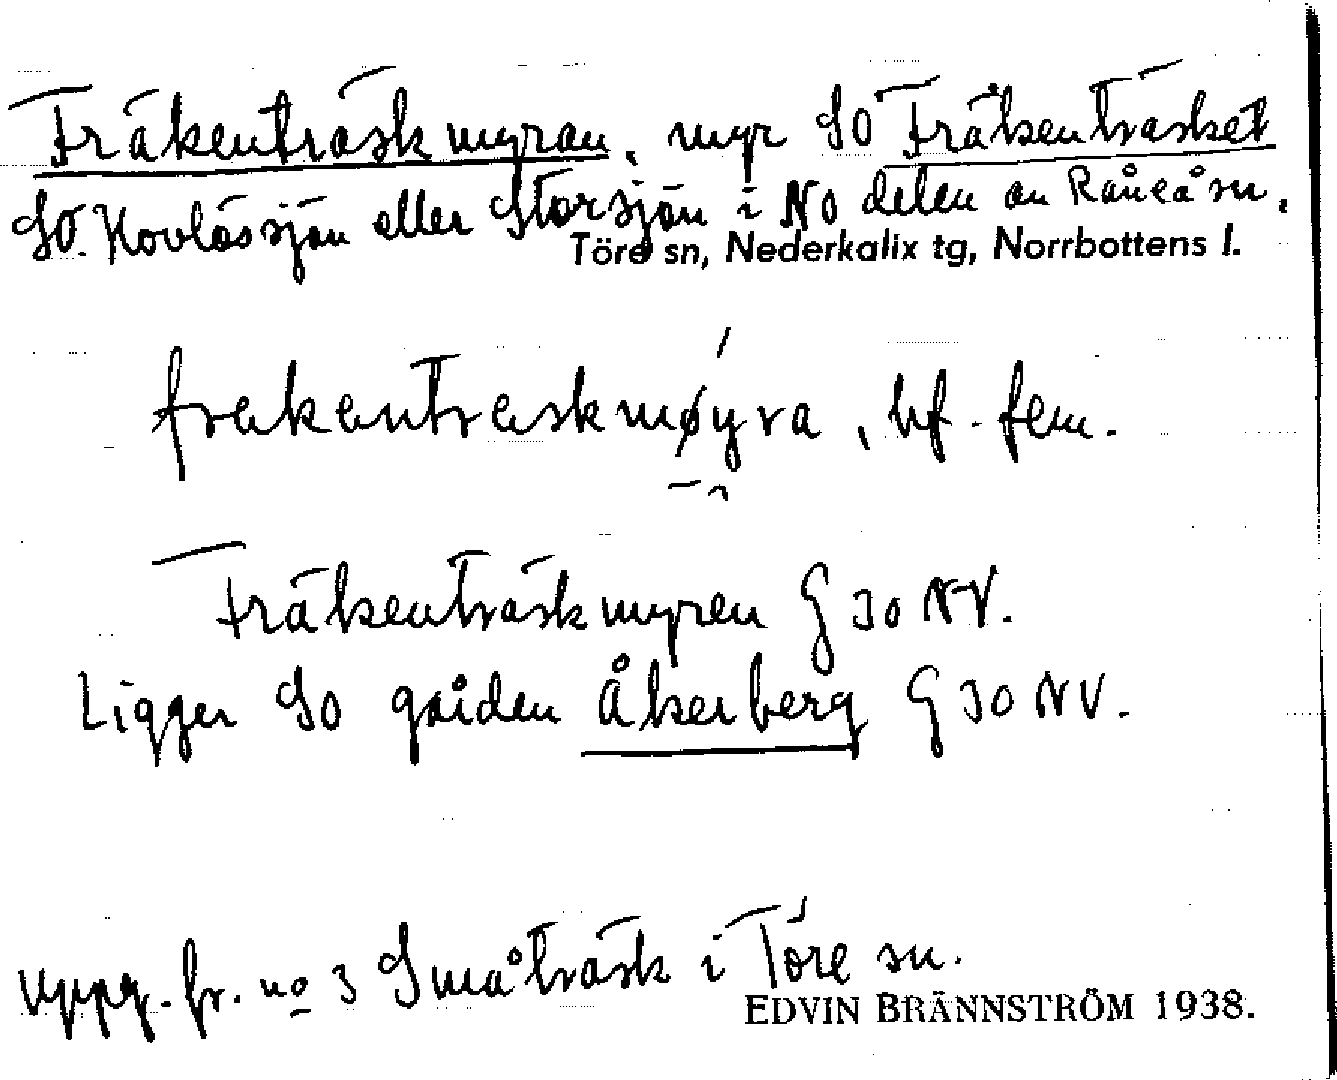 Fräkenträskmyran, myr SO Fräkenträsket
SO. Hovlössjön eller Storsjön i NO delen av Råneå sn.
Töre sn, Nederkalix tg, Norrbottens l.
frekentreskmøyra, bf. fem.
Fräkenträskmyren G 30 NV.
Ligger SO gården Åkerberg G 30 NV.
Uppg. fr. no 3 Småträsk i Töre sn.
EDVIN BRÄNNSTRÖM 1938.